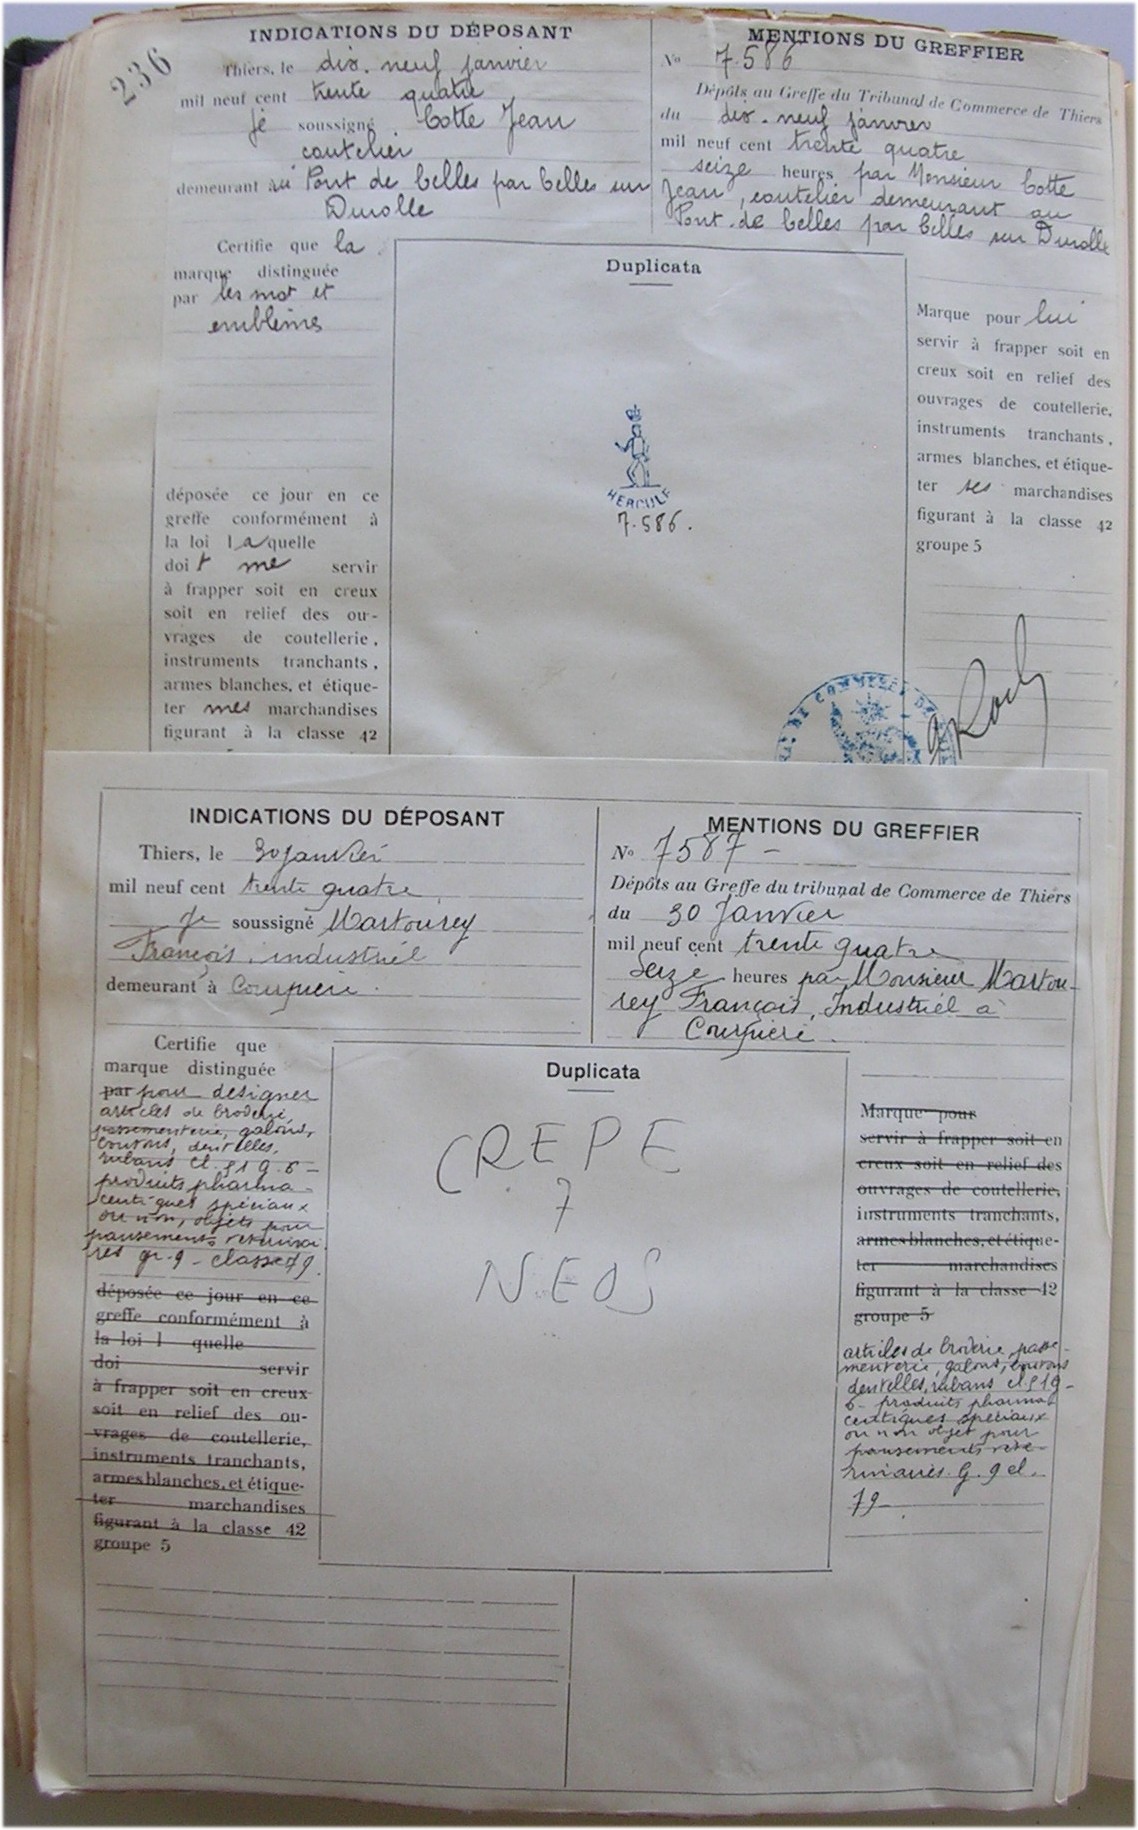 236
INDICATIONS DU DÉPOSANT
Thiers, le dix. neuf janvier
mil neuf cent trente quatre
je soussigné Cotte Jean
coutelier
demeurant au Pont de Celles par Celles sur
Durolle
Certifie que la
marque distinguée
par les mot et
emblèmes
déposée ce jour en ce
greffe conformément à
la loi laquelle
doit me servir
à frapper soit en creux
soit en relief des ou-
vrages de coutellerie,
instruments tranchants,
armes blanches, et étique-
ter mes marchandises
figurant à la classe 42
MENTIONS DU GREFFIER
No 7.586
Dépôts au Greffe du Tribunal de Commerce de Thiers
du dix. neuf janvier
mil neuf cent trente quatre
seize heures par Monsieur Cotte
Jean, coutelier demeurant au
Pont de Celles par Celles sur Durolle
Duplicata
HERCULE
7.586.
Marque pour lui
servir à frapper soit en
creux soit en relief des
ouvrages de coutellerie,
instruments tranchants,
armes blanches, et étique-
ter ses marchandises
figurant à la classe 42
groupe 5
DE COMMERCE DE
INDICATIONS DU DÉPOSANT
Thiers, le 30 janvier
mil neuf cent trente quatre
je soussigné Martourey
François, industriel
demeurant à Courpière.
Certifie que
marque distinguée
par pour designer
articles de broderie,
passementerie, galons,
boutons, dentelles,
rubans cl. 51 g. 6 -
produits pharma-
ceutiques spéciaux
ou non, objets pour
pansements veterinai
res gr. 9 - classe 79.
déposée ce jour en ce
greffe conformément à
la loi l quelle
doi servir
à frapper soit en creux
soit en relief des ou-
vrages de coutellerie,
instruments tranchants,
armes blanches, et étique-
ter marchandises
figurant à la classe 42
groupe 5
MENTIONS DU GREFFIER
No 7587 -
Dépôts au Greffe du tribunal de Commerce de Thiers
du 30 Janvier
mil neuf cent trente quatre
Seize heures par Monsieur Martou-
rey François, Industriel à
Courpière.
Duplicata
CREPE
7
NEOS
Marque pour
servir à frapper soit en
creux soit en relief des
ouvrages de coutellerie,
instruments tranchants,
armes blanches, et étique-
ter marchandises
figurant à la classe 42
groupe 5
articles de broderie, passe-
menterie, galons, boutons
dentelles, rubans cl 51 g-
6 - produits pharma
ceutiques spéciaux
ou non objet pour
pansements vete-
rinaires. G. 9 cl.
79 -